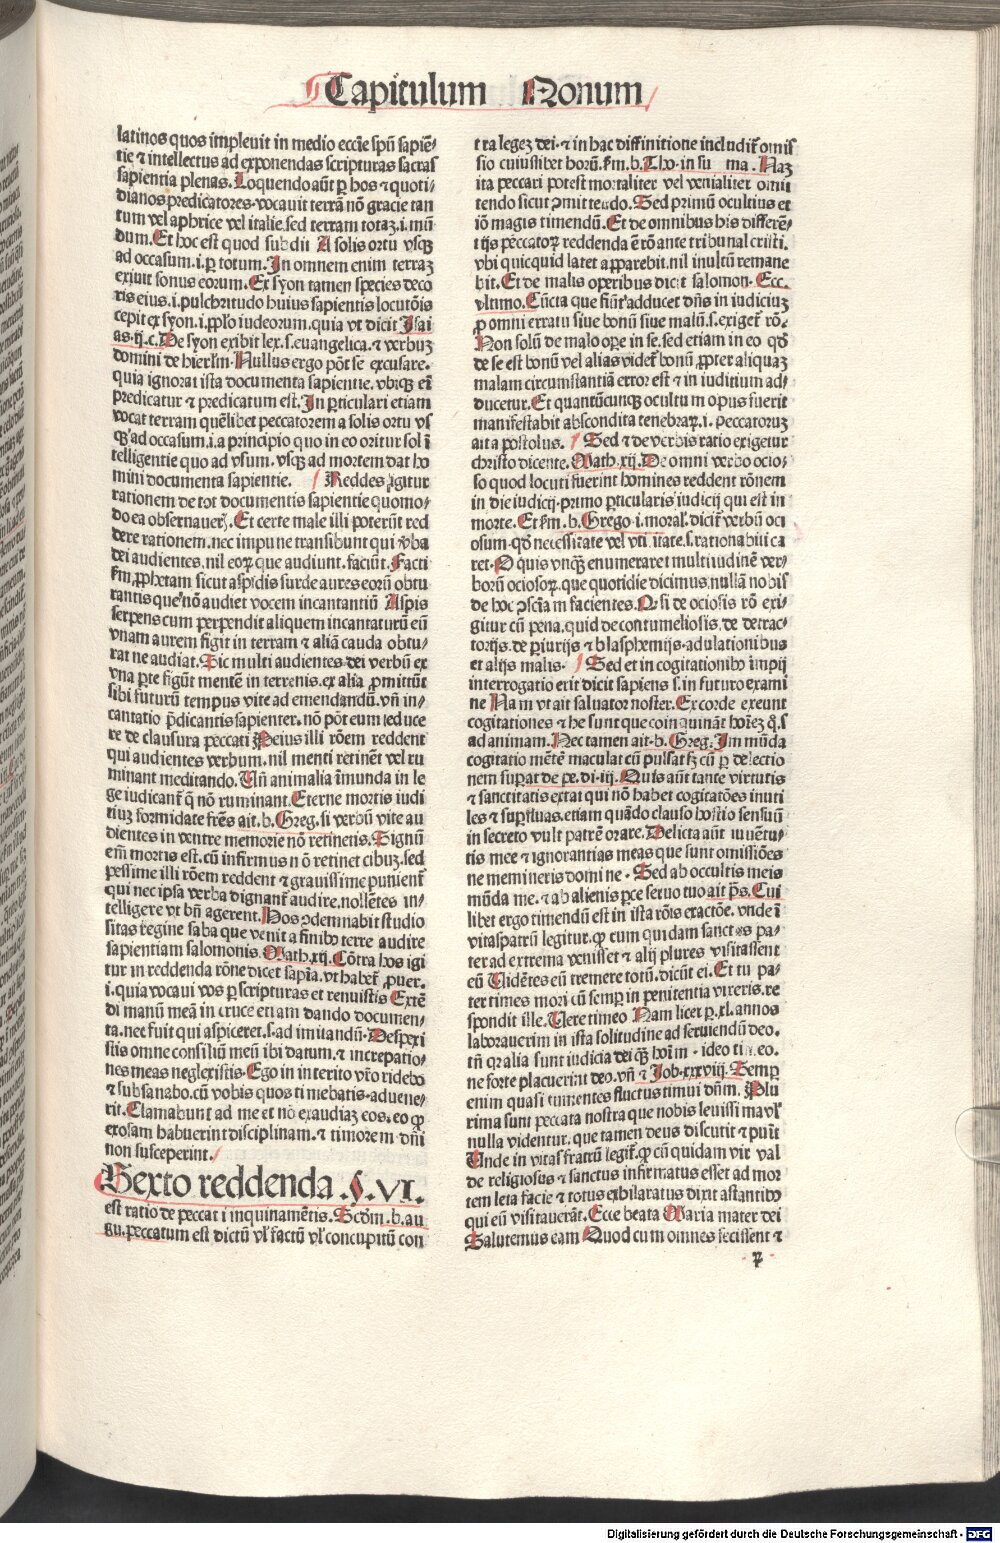 Capitulum Nonum
latinos quos impleuit in medio eccĺie spũ sapiẽ-
tie ⁊ intellectus ad exponendas scripturas sacras
sapientia plenas. Loquendo aũt ꝑ hos ⁊ quoti-
dianos predicatores. vocauit terrã nõ grecie tan
tum vel aphrice vel italie. sed terram totaꝫ .i. mũ
dum. Et hoc est quod subdit A solis ortu vsqꝫ
ad occasum .i. ꝑ totum. In omnem enim terraꝫ
exiuit sonus eorum. Et syon tamen species deco
ris eius .i. pulchritudo huius sapientis locutõis
cepit ex syon .i. ppĺo iudeorum. quia vt dicit Isai
as .ij. c. De syon exibit lex .s. euangelica. ⁊ verbuꝫ
domini de hierĺm. Nullus ergo põt se excusare.
quia ignorat ista documenta sapientie. vbiqꝫ em̃
predicatur ⁊ predicatum est. In ꝑticulari etiam
vocat terram quẽlibet peccatorem a solis ortu vs
qꝫ ad occasum .i. a principio quo in eo oritur sol i
telligentie quo ad vsum. vsqꝫ ad mortem dat ho
mini documenta sapientie. Reddes igitur
rationem de tot documentis sapientie quomo-
do ea obseruauerꝭ. Et certe male illi poterũt red
dere rationem. nec impune transibunt qui ṽba
dei audientes. nil eoꝝ que audiunt. faciũt. Facti
ẜm ꝓphetam sicut aspidis surde aures eorũ obtu
rantis que nõ audiet vocem incantantiũ Aspis
serpens cum perpendit aliquem incantaturũ eũ
vnam aurem figit in terram ⁊ aliã cauda obtu-
rat ne audiat. Sic multi audientes dei verbũ ex
vna ꝑte figũt mentẽ in terrenis. ex alia ꝓmittũt
sibi futurũ tempus vite ad emendandũ. vñ in-
cantatio p̃dicantis sapienter. nõ põt eum educe
re de clausura peccati Peius illi rõem reddent
qui audientes verbum. nil menti retinẽt vel ru
minant meditando. Vñ animalia imunda in le
ge iudicant̃ q̃ nõ ruminant. Eterne mortis iudi
ciuꝫ formidate fr̃es ait. b. Greg. si verbũ vite au
dientes in ventre memorie nõ retinetis. Signũ
em̃ mortis est. cũ infirmus nõ retinet cibuꝫ. sed
pessime illi rõem reddent ⁊ grauissime punient̃
qui nec ipsa verba dignant̃ audire. nollẽtes in-
telligere vt bñ agerent. Hos ꝯdemnabit studio
sitas regine saba que venit a finibꝰ terre audire
sapientiam salomonis. Math. xij. Cõtra hos igi
tur in reddenda rõne dicet sapĩa. vt habet̃ ꝓuer.
i. quia vocaui vos ꝑ scripturas et renuistis Extẽ
di manũ meã in cruce etiam dando documen-
ta. nec fuit qui aspiceret. s. ad imitandũ. Despexi
stis omne consiliũ meũ ibi datum. ⁊ increpatio-
nes meas neglexistis. Ego in interitu vrõ ridebo
⁊ subsanabo. cũ vobis quos timebatis. aduene-
rit. Clamabunt ad me et nõ exaudiaꝫ eos. eo ꝙ
exosam habuerint disciplinam. ⁊ timorem dñi
non susceperint.
Sexto reddenda .§. VI.
est ratio de peccati inquinamẽtis. Scd̃m. b. au
gu. peccatum est dictũ vĺ factũ vĺ concupitũ con
tra legeꝫ dei. ⁊ in hac diffinitione includit̃ omis
sio cuiuslibet horũ. ẜm. b. Tho. in summa. Naꝫ
ita peccari potest mortaliter vel venialiter omit
tendo sicut ꝯmittendo. Sed primũ ocultius et
iõ magis timendũ. Et de omnibus his differẽ-
tijs peccatoꝝ reddenda ẽ rõ ante tribunal cristi.
vbi quicquid latet apparebit. nil inultũ remane
bit. Et de malis operibus dicit salomon. Ecc.
vltimo. Cũcta que fiũt adducet dñs in iudiciuꝫ
ꝓ omni erratu siue bonũ siue malũ. s. exiget̃ rõ.
Non solũ de malo oꝑe in se. sed etiam in eo qđ
de se est bonũ vel alias videt̃ bonũ ꝓpter aliquaꝫ
malam circumstantiã error est ⁊ in iuditium ad-
ducetur. Et quantũcunqꝫ ocultum opus fuerit
manifestabit abscondita tenebraꝝ .i. peccatoruꝫ
ait apostolus. Sed ⁊ de verbis ratio exigetur
christo dicente. Math. xij. De omni verbo ocio-
so quod locuti fuerint homines reddent rõnem
in die iudicij. primo ꝑticularis iudicij qui est in
morte. Et ẜm. b. Grego. i. moral̃. dicit̃ verbũ oci
osum. qđ necessitate vel vtilitate. s. rationabili ca
ret. O quis vnqꝫ enumeraret multitudinẽ ver-
borũ ociosoꝝ. que quotidie dicimus. nullã nobis
de hoc ꝯsciam facientes. Qꝫ si de ociosis rõ exi-
gitur cũ pena. quid de contumeliosis. de detrac-
torijs. de periurijs ⁊ blasphemijs. adulationibus
et alijs malis. Sed et in cogitationibꝰ impij
interrogatio erit dicit sapiens s. in futuro exami
ne Nam vt ait saluator noster. Ex corde exeunt
cogitationes ⁊ he sunt que coinquinãt hoĩeꝫ q̃.s
ad animam. Nec tamen ait. b. Greg. Immũda
cogitatio mẽtẽ maculat cũ pulsat sꝫ cũ ꝑ delectio
nem suꝑat de pe. di. iij. Quis aũt tante virtutis
⁊ sanctitatis extat qui nõ habet cogitatões inuti
les ⁊ suꝑfluas. etiam quãdo clauso hostio sensuũ
in secreto vult patrẽ orare. Delicta aũt iuuẽtu-
tis mee ⁊ ignorantias meas que sunt omissiões
ne memineris domine. Sed ab occultis meis
mũda me. ⁊ ab alienis ꝑce seruo tuo ait ps̃. Cui
libet ergo timendũ est in ista rõis exactõe. vnde i
vitaspatrũ legitur. ꝙ cum quidam sanctus pa-
ter ad extrema venisset ⁊ alij plures visitassent
eũ Vidẽtes eũ tremere totũ. dicũt ei. Et tu pa-
ter times mori cũ semꝑ in penitentia vixeris. re
spondit ille. Vere timeo Nam licet ꝑ .xl. annos
laborauerim in ista solitudine ad seruiendũ deo.
tñ qꝛ alia sunt iudicia dei qꝫ hoĩm. ideo timeo.
ne forte placuerint deo. vñ ⁊ Job. xxxviij. Semꝑ
enim quasi tumentes fluctus timui dñm. Plu
rima sunt peccata nostra que nobis leuissima vĺ
nulla videntur. que tamen deus discutit ⁊ punit
Unde in vitasfratrũ legit̃. ꝙ cũ quidam vir val
de religiosus ⁊ sanctus infirmatus esset ad mor
tem leta facie ⁊ totus exhilaratus dixit astantibꝰ
qui eũ visitauerãt. Ecce beata Maria mater dei
Salutemus eam Quod cum omnes fecissent ⁊